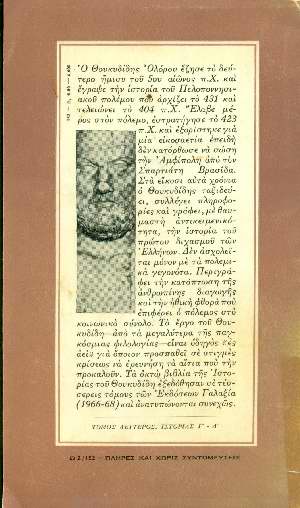 Ὁ Θουκυδίδης Ὀλόρου ἔζησε τὸ δεύ-
τερο ἥμισυ τοῦ 5ου αἰῶνος π.Χ. καὶ
ἔγραψε τὴν ἱστορία τοῦ Πελοποννησι-
ακοῦ πολέμου ποὺ ἀρχίζει τὸ 431 καὶ
τελειώνει τὸ 404 π.Χ. Ἔλαβε μέ-
ρος στὸν πόλεμο, ἐστρατήγησε τὸ 423
π.Χ. καὶ ἐξορίστηκε γιὰ
μία εἰκοσαετία ἐπειδὴ
δὲν κατόρθωσε νὰ σώση
τὴν Ἀμφίπολη ἀπὸ τὸν
Σπαρτιάτη Βρασίδα.
Στὰ εἴκοσι αὐτὰ χρόνια
ὁ Θουκυδίδης ταξιδεύ-
ει, συλλέγει πληροφο-
ρίες καὶ γράφει, μὲ θαυ-
μαστὴ ἀντικειμενικό-
τητα, τὴν ἱστορία τοῦ
πρώτου διχασμοῦ τῶν
Ἑλλήνων. Δὲν ἀσχολεῖ-
ται μόνον μὲ τὰ πολεμι-
κὰ γεγονότα. Περιγρά-
φει τὴν κατάπτωση τῆς
ἀνθρωπίνης διαγωγῆς
καὶ τὴν ἠθικὴ φθορὰ ποὺ
ἐπιφέρει ὁ πόλεμος στὸ
κοινωνικὸ σύνολο. Τὸ ἔργο τοῦ Θου-
κυδίδη—ἀπὸ τὰ μεγαλύτερα τῆς παγ-
κόσμιας φιλολογίας—εἶναι ὁδηγὸς «ἐς
ἀεὶ» γιὰ ὅποιον προσπαθεῖ σὲ στιγμὲς
κρίσεως νὰ ἐρευνήση τὰ αἴτια ποὺ τὴν
προκαλοῦν. Τὰ ὀκτὼ βιβλία τῆς Ἱστο-
ρίας τοῦ Θουκυδίδη ἐξεδόθησαν σὲ τέσ-
σερεις τόμους τῶν Ἐκδόσεων Γαλαξία
(1966-68) καὶ ἀνατυπώνονται συνεχῶς.
ΤΟΜΟΣ ΔΕΥΤΕΡΟΣ, ΙΣΤΟΡΙΑΣ Γ' - Δ'
ΠΛΗΡΕΣ ΚΑΙ ΧΩΡΙΣ ΣΥΝΤΟΜΕΥΣΕΙΣ